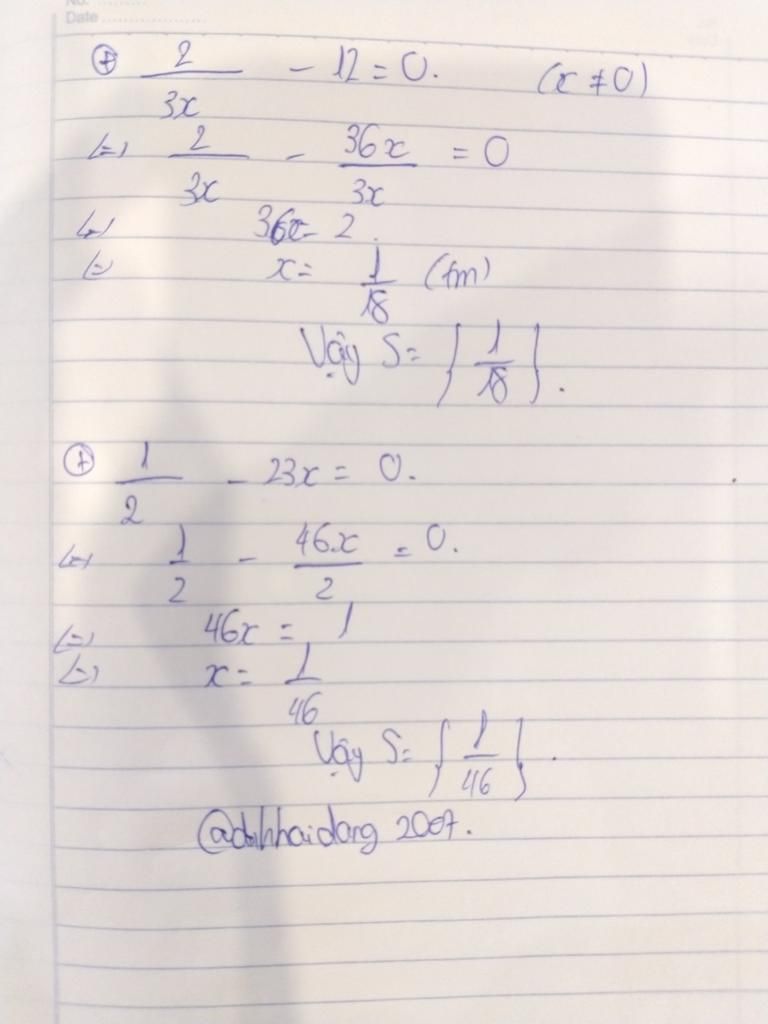 No. ..........
Date ....................
⊕ 2/3x - 12 = 0. (x ≠ 0)
(=) 2/3x - 36x/3x = 0
(=) 36x = 2.
(=) x = 1/18 (tm)
Vậy S = {1/18}.
⊕ 1/2 - 23x = 0.
(=) 1/2 - 46x/2 = 0.
(=) 46x = 1
(=) x = 1/46
Vậy S = {1/46}.
2007.